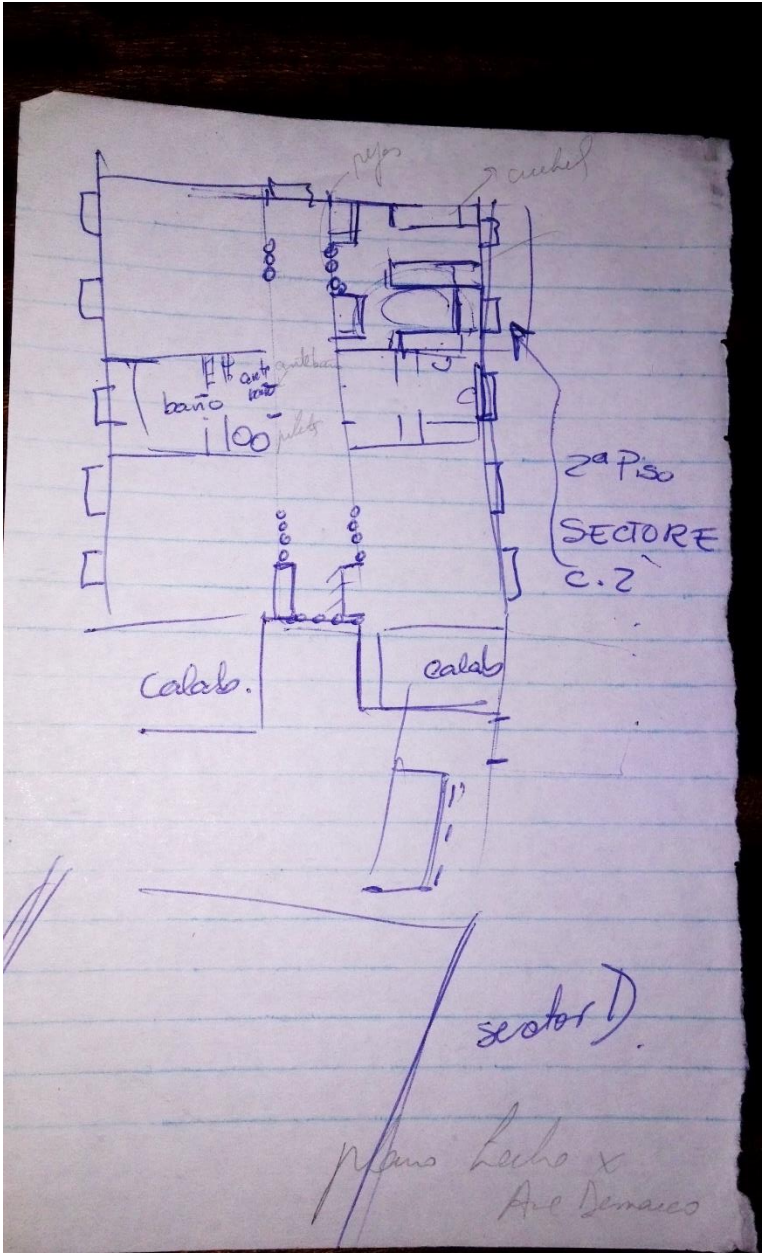 rejas
cuchet
ante
baño
baño
2ª Piso
SECTORE
C.2
Calab.
calab
sector D.
plano hecho x
Ana Demarco